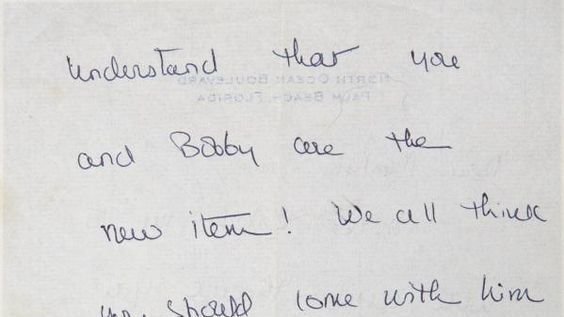 understand that you
NORTH OCEAN BOULEVARD
PALM BEACH, FLORIDA
and Bobby are the
new item! We all think
you should come with him